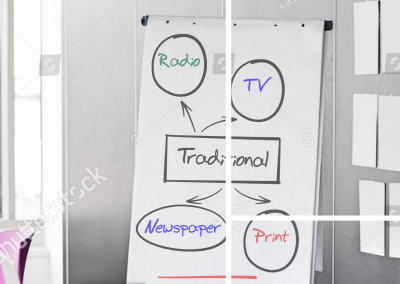 Radio
TV
Traditional
Newspaper
Print
shutterstock